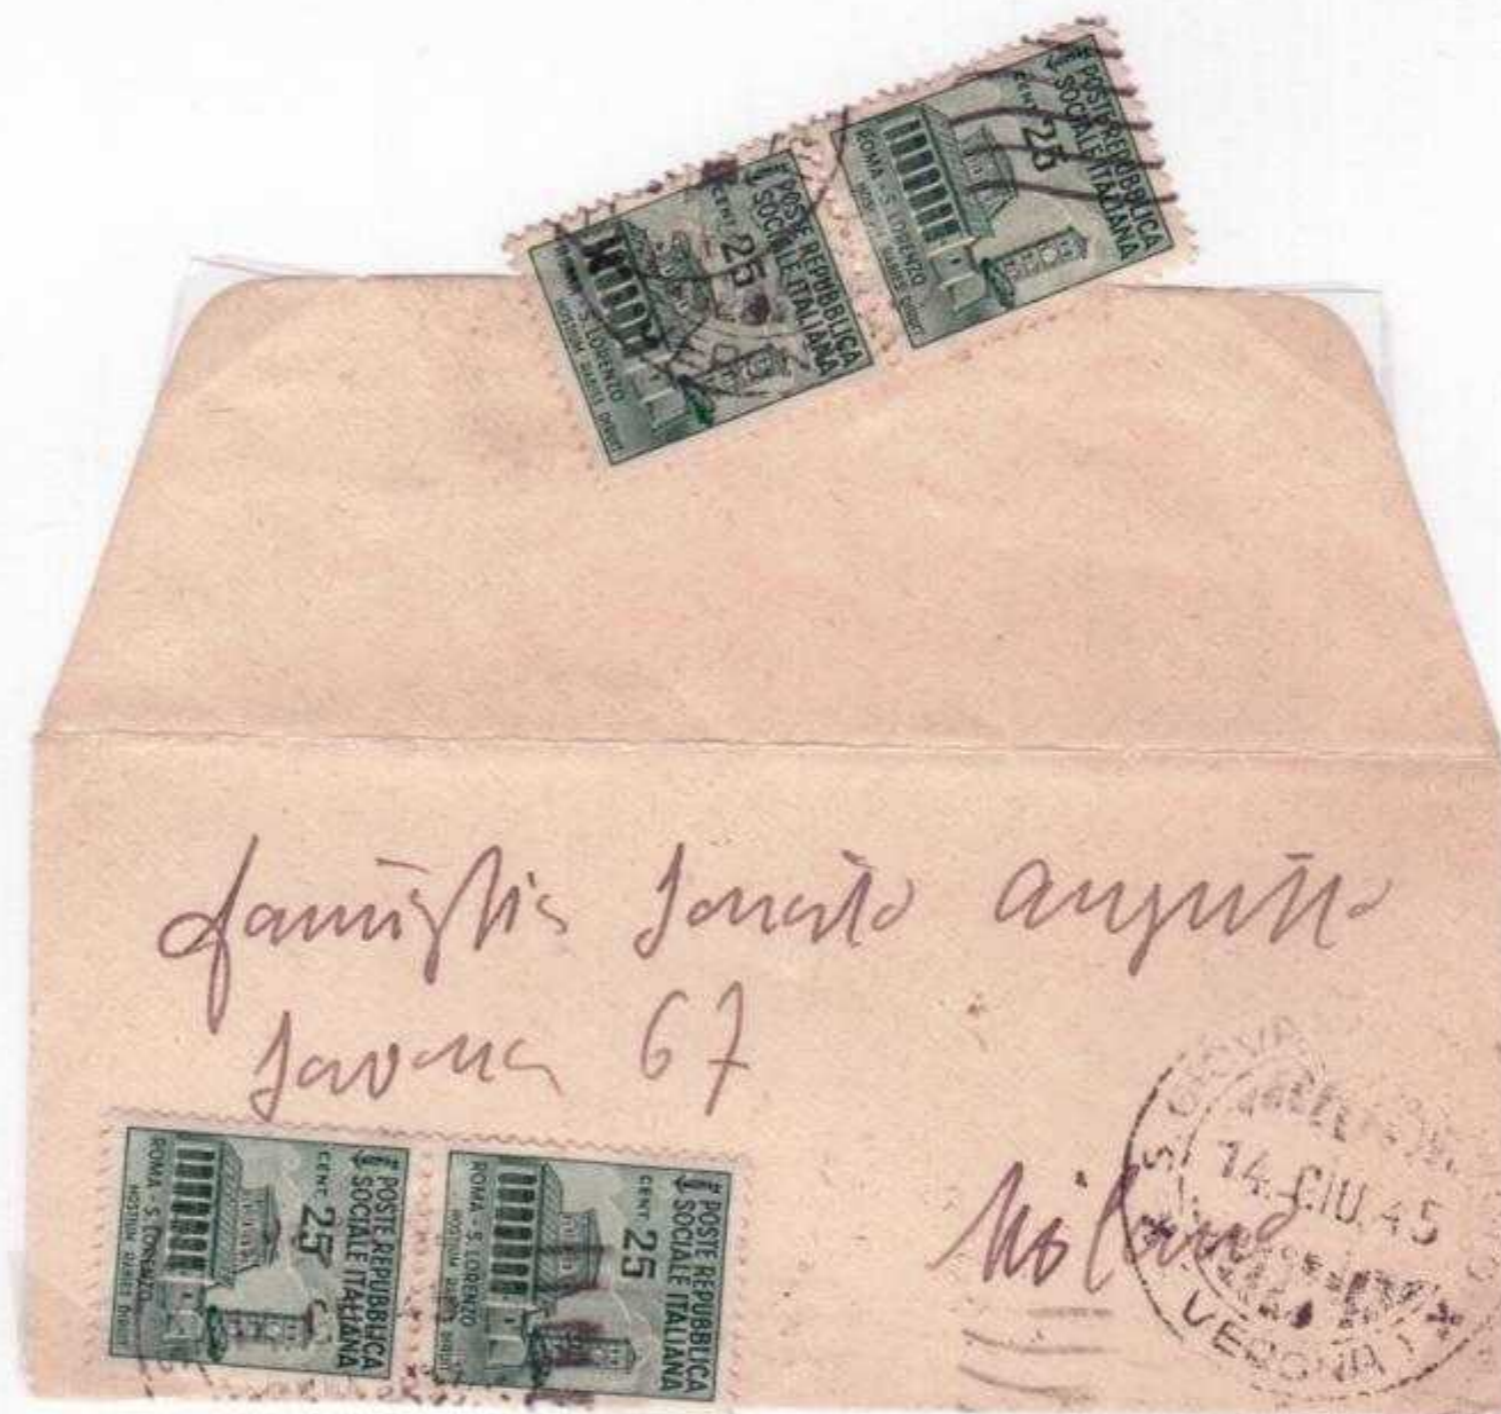 POSTE REPUBBLICA
SOCIALE ITALIANA
CENT. 25
ROMA - S. LORENZO
HOSTIUM RABIES DIRUIT
POSTE REPUBBLICA
SOCIALE ITALIANA
CENT. 25
S. LORENZO
HOSTIUM RABIES DIRUIT
famiglia Augusto
Savona 67
Milano
14. GIU. 45
VERONA
POSTE REPUBBLICA
SOCIALE ITALIANA
CENT. 25
ROMA - S. LORENZO
HOSTIUM RABIES DIRUIT
POSTE REPUBBLICA
SOCIALE ITALIANA
CENT. 25
ROMA - S. LORENZO
HOSTIUM RABIES DIRUIT